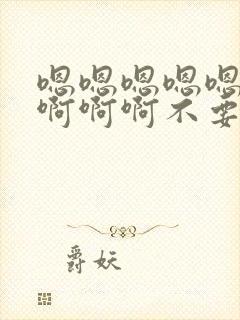 嗯嗯嗯嗯嗯
啊啊啊不要
爵妖